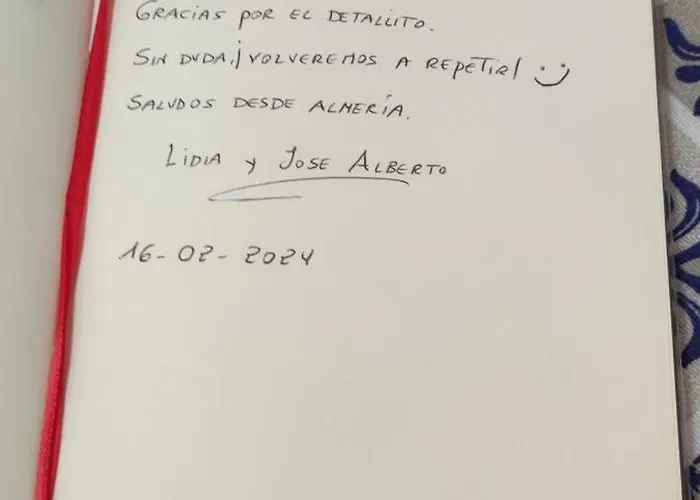 GRACIAS POR EL DETALLITO.
SIN DUDA, ¡VOLVEREMOS A REPETIR! :)
SALUDOS DESDE ALMERÍA.
LIDIA Y JOSE ALBERTO
16-02-2024